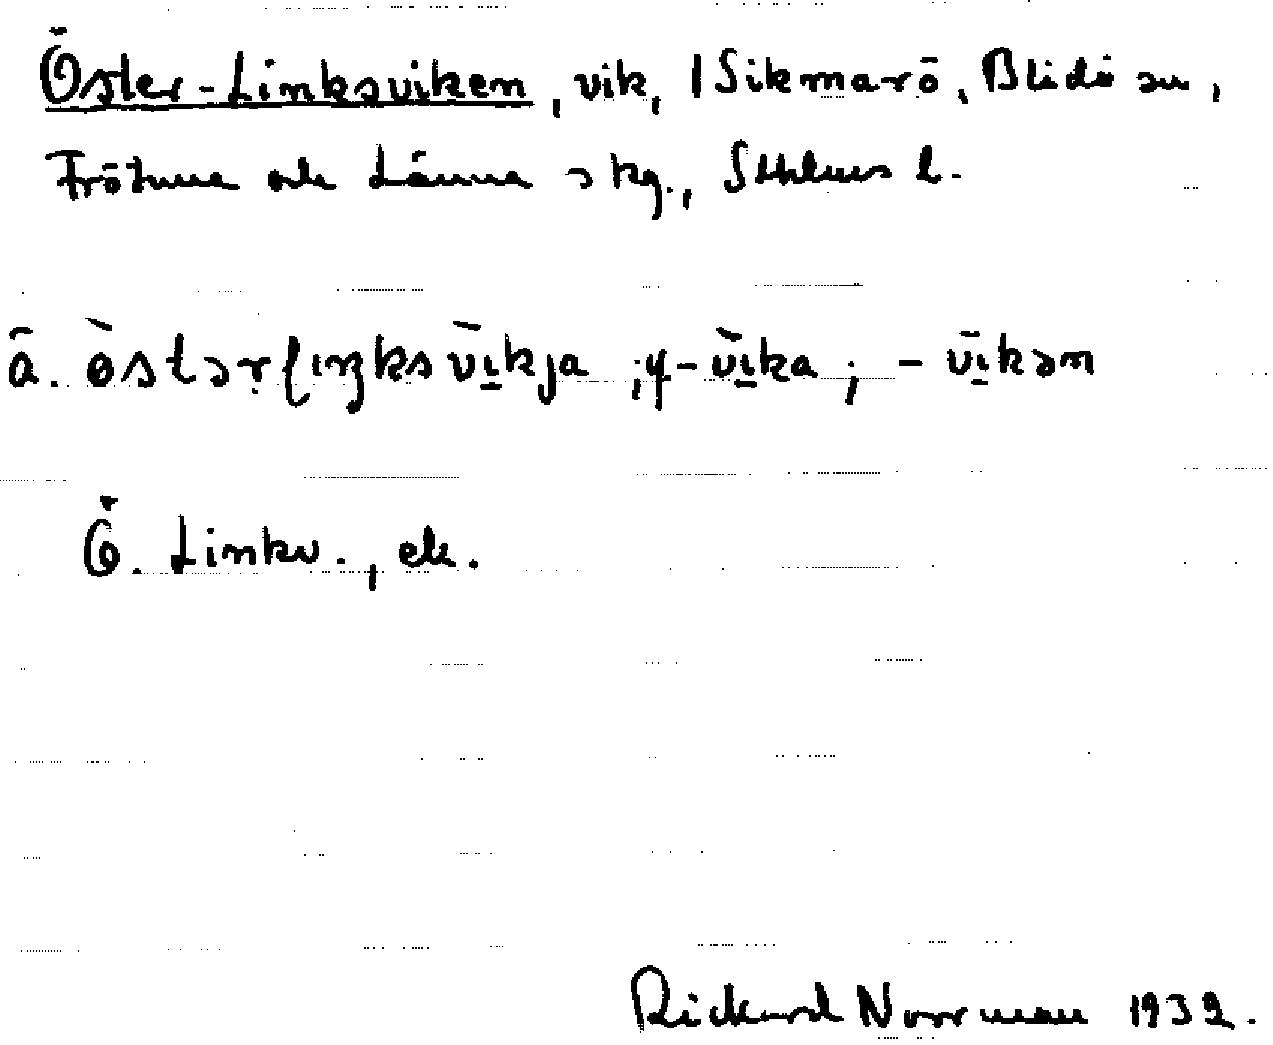 Öster-Linksviken, vik, I Sikmarö, Blidö sn,
Frötuna och Länna skg., Sthlms l.
å. òstərliŋksv̄ikja ; y-v̄ika ; - v̄ikən
Ö. Linkv., ek.
Rickard Norrman 1932.